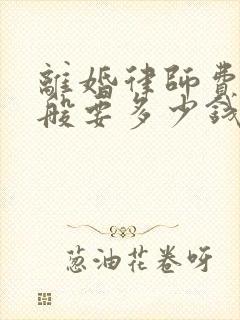 離婚律師費
般要多少錢
葱油花卷呀